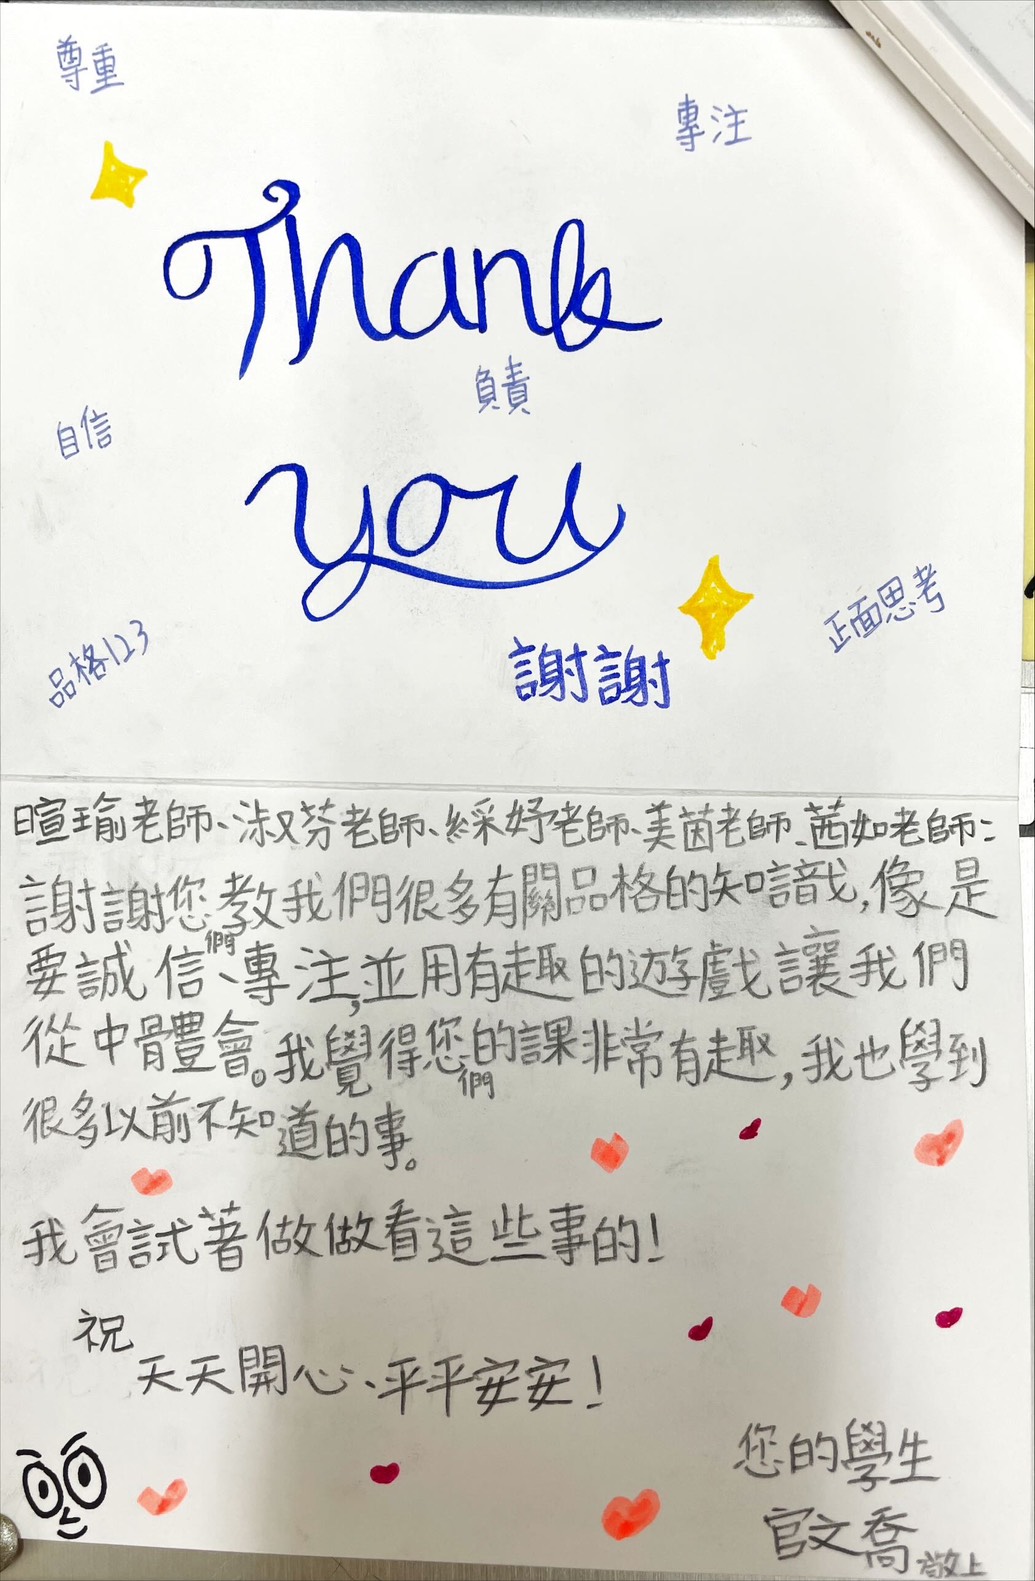 尊重
專注
Thank
負責
自信
you
正面思考
品格123
謝謝
暄瑜老師、淑芬老師、綵妤老師、美茵老師、茜如老師：
謝謝您們教我們很多有關品格的知識，像是
要誠信、專注，並用有趣的遊戲讓我們
從中體會。我覺得您們的課非常有趣，我也學到
很多以前不知道的事。
我會試著做做看這些事的！
祝
天天開心、平平安安！
您的學生
官文喬敬上